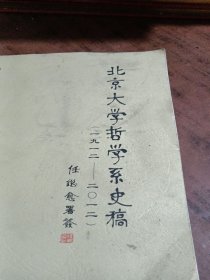 北京大学哲学系史稿
（一九一二——二〇一二）
任继愈署签